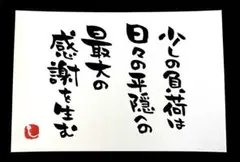 少しの負荷は
日々の平隠への
最大の
感謝を生む